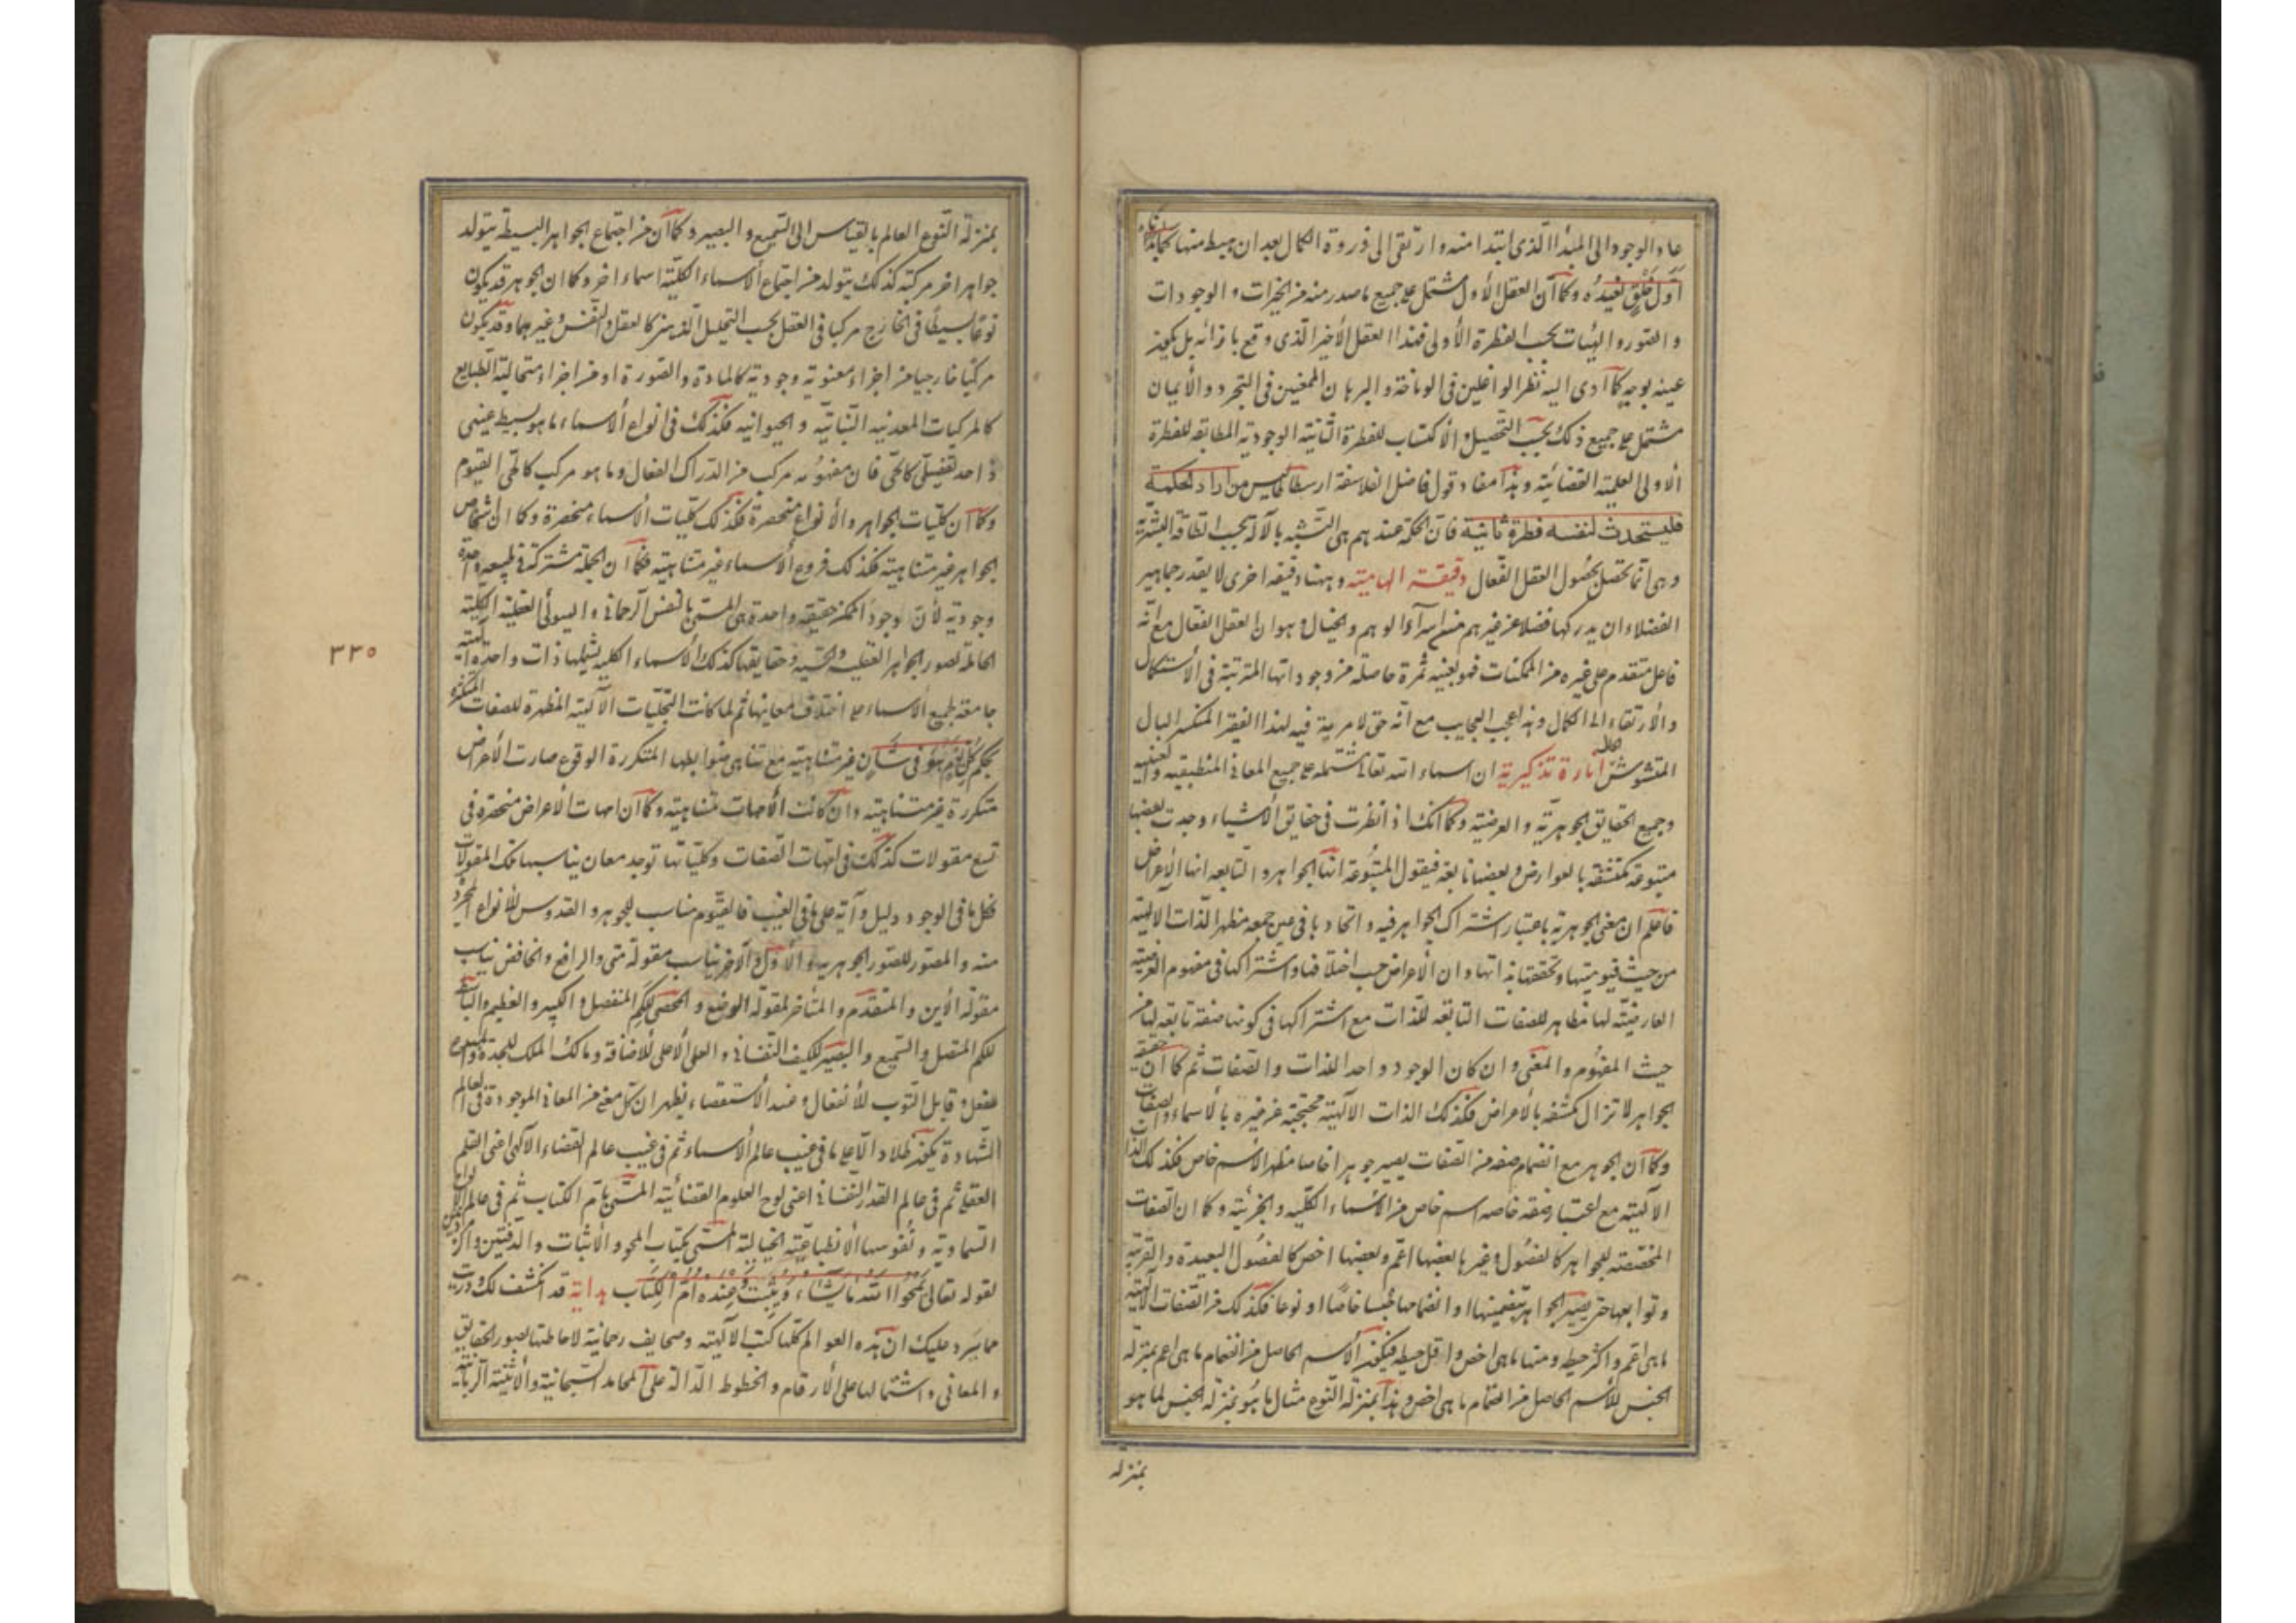 عاد الوجود الى المبدأ الذى ابتدا منه وارتقى الى ذروة الكمال بعد ان هبط منها كما بدأنا
اَوَّلَ خَلْقٍ نُعِيدُه وكما أن العقل الأول مشتمل على جميع ما صدر منه من الخيرات والوجودات
والصور والهيئات بحسب الفطرة الأولى فهذا العقل الأخير الذى وقع بازائه بل يكون
عينه بوجه كما أدى اليه نظر الواغلين فى الرياضة والبرهان الممعنين فى التجرد والأيمان
مشتمل على جميع ذلك بحسب التحصيل والأكتساب للفطرة الثانية الوجودية المطابقه للفطرة
الأولى العلميته القضائية وهذا مفاد قول فاضل الفلاسفة ارسطاطاليس من اراد الحكمة
فليستحدث لنفسه فطرة ثانية فان الحكمة عندهم هى التشبه بالاله بحسب الطاقة البشرية
وهى انما تحصل بحصول العقل الفعال دقيقة الهاميته وههنا دقيقه اخرى لا يقدر جماهير
الفضلاء ان يدركها فضلا عن غيرهم من اسرآء الوهم والخيال وهو ان العقل الفعال مع انه
فاعل متقدم على غيره من الممكنات فهو بعينه ثمرة حاصله من وجوداتها المترتبة فى الأستكمال
والأرتقاء الى الكمال وهذا عجب العجايب مع انه حق لا مرية فيه لهذا الفقير المنكسر البال
المتشوش الحال انارة تذكيرية ان اسماء الله تعالى مشتمله على جميع المعانى المنطبقيه والعينيه
وجميع الحقايق الجوهريّة والعرضيّه وكما انك اذا نظرت فى حقايق الاشياء وجدت بعضها
متبوعة مكتنفة بالعوارض وبعضها تابعه فيقول المتبُوعة انها الجواهر والتابعه انها الأعراض
فاعلم ان معنى الجوهرية باعتبار اشتراك الجواهر فيه واتحادها فى عين جمعه مظهر الذات الالهيته
من حيث قيوميتها وتحققها بذاتها وان الأعراض حسب اختلافها واشتراكها فى مفهوم العرضيته
العارضيّته لها مظاهر للصفات التابعه للذات مع اشتراكها فى كونها صفة تابعه لها من
حيث المفهُوم والمعنى وان كان الوجود واحد اللذات والصفات ثم كما ان حقيقه
الجواهر لا تزال مكتنفه بالأعراض فكذلك الذات الآلهيته محتجبة عن غيره بالأسماء والصفات
وكما ان الجوهر مع انضمام صفه من الصفات يصير جوهرا خاصا مظهر الأسم خاص فكذلك الذات
الآلهيته مع اعتبار صفه خاصه اسم خاص من الاسماء الكليه والجزئيته وكما ان الصفات
المخصصته للجواهر كالفصُول وغيرها بعضها اعّم وبعضها اخص كالفصُول البعيدة والقريبة
وتوابعها حتى يصير الجواهر بتضمينها او انضمامها جنسا خاصًا او نوعا فكذلك من الصفات الالهيه
ما هى اعّم واكثر حيطه ومنها ما هى اخص واقل حيطه فيكون الأسم الحاصل من انضمام ما هى اعم بمنزله
الجنس للأسم الحاصل من انضمام ما هى اخص وهذا بمنزله النوع مثال ما هُو بمنزله الجنس لما هو
بمنزله
بمنزلة النوع العالم بالقياس الى السميع والبصير وكما ان من اجتماع الجواهر البسيطه يتولد
جواهر اخر مركبة كذلك يتولد من اجتماع الأسماء الكليّته اسماء اخر وكما ان الجوهر قد يكون
نوعًا بسيطًا فى الخارج مركبا فى العقل بحسب التحليل الذهنى كالعقل والنفس وغيرهما وقد يكون
مركبا خارجيا من اجزاء معنويته وجوديته كالمادة والصورة او من اجزاء متخالفة الطبايع
كالمركبات المعدنيه النباتيّه والحيوانيه فكذلك فى انواع الأسماء ما هو بسيط عينى
ذا حد تفصيلّى كالحّى فان مفهومه مركب من الدراك الفعال وما هو مركب كالحى القيوم
وكما ان كليّات الجواهر والأنواع منحصرة فكذلك كليات الأسماء منحصرة وكما ان اشخاص
الجواهر غير متناهيته فكذلك فروع الأسماء غير متناهيته فكما ان الجملة مشتركة فى طبيعه واحدة
وجوديه لأن وجود الممكن حقيقه واحدة هى المسمى بالنفس الرحمانى والهيولى العقلية الكليّته
الحاملة لصور الجواهر العقليه والحسيّه وحقايقها كذلك الأسماء الكليه يشملها ذات واحدة الهيته
جامعه لجميع الأسماء على اختلاف معانيها ثم لما كانت التجلّيات الآلهيّته المظهرة للصفات المتكثره
بحكم كُلَّ يَوْمٍ هُوَ فى شَأنٍ غير متناهيته مع تناهى ضوابطها المتكررة الوقوع صارت الأعراض
متكررة غير متناهيته وان كانت الأمهات متناهيته وكما ان امهات الأعراض منحصرة فى
تسع مقولات كذلك فى امّهات الصفات وكليّاتها توجد معان يناسبها تلك المقولات
فكل ما فى الوجود دليل وآية على ما فى الغيب فالقيّوم مناسب للجوهر والقدوس للأنواع المجرد
منه والمصور للصور الجوهريه والأول والآخر يناسب مقولة متى والرافع والخافض يناسب
مقولة الأين والمتقدم والمتأخر لمقولة الوضع والمحصى للكم المنفصل والكبير والعظيم والباسط
للكم المتصل والسميع والبصير للكيف النفسانى والعلى الأعلى للأضافة ومالك الملك للجدة والمبدع
للفعل وقابل التوب للأنفعال وعند الأستقصاء يظهر ان كل معنى من المعانى الموجودة فى العالم
الشهادة يكون ظلا دالا على ما فى غيب عالم الأسماء ثم فى غيب عالم القضاء الآلهى اعنى القلم
العقلى ثم فى عالم القدر النفسانى اعنى لوح العلوم القضائيته المسمى بام الكتاب ثم فى عالم الألواح
السماويته ونُفوسها الأنطباعيّته الخياليته المسمّى بكتاب المحو والأثبات والدفتين
لقوله تعالى يَمْحُوا اللهُ ما يَشَاء وَيُثْبِتُ وَعِنْدَهُ اُمُّ الْكِتاب هداية قد انكشف لك ودريت
مما سرد عليك ان هذه العوالم كلها كتب الآلهيته وصحايف رحمانية لاحاطتها بصور الحقايق
والمعانى واشتمالها على الأرقام والخطوط الدّالة على المحامد السبحانية والأثنية الربانيه
٣٣٥